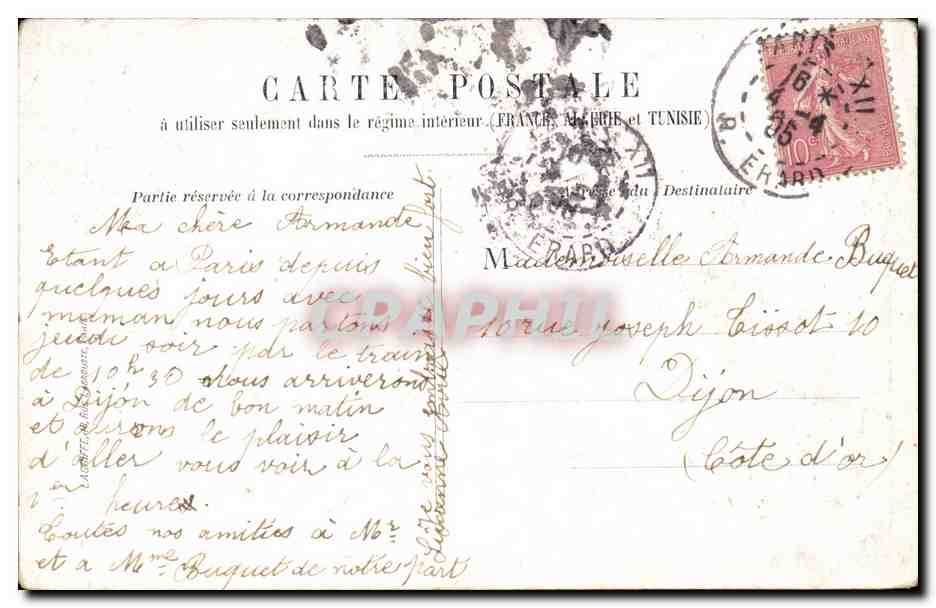 CARTE POSTALE
à utiliser seulement dans le régime intérieur (FRANCE, ALGERIE et TUNISIE)
Partie réservée à la correspondance
Adresse du Destinataire
Ma chère Armande
Etant a Paris depuis
quelques jours avec
maman nous partons
jeudi soir par le train
de 10h 30 Nous arriverons
à Dijon de bon matin
et aurons le plaisir
d'aller vous voir à la
1er heure.
Toutes nos amitiés à Mr
et a Mme Buquet de notre part
Je vous embrasse bien fort
Lucienne
Mademoiselle Armande Buquet
10 rue Joseph Tissot 10
Dijon
(Côte d'or)
PARIS XII
16
4 -4
05
R. ERARD
10c
XII
ERARD
CPAPHIL